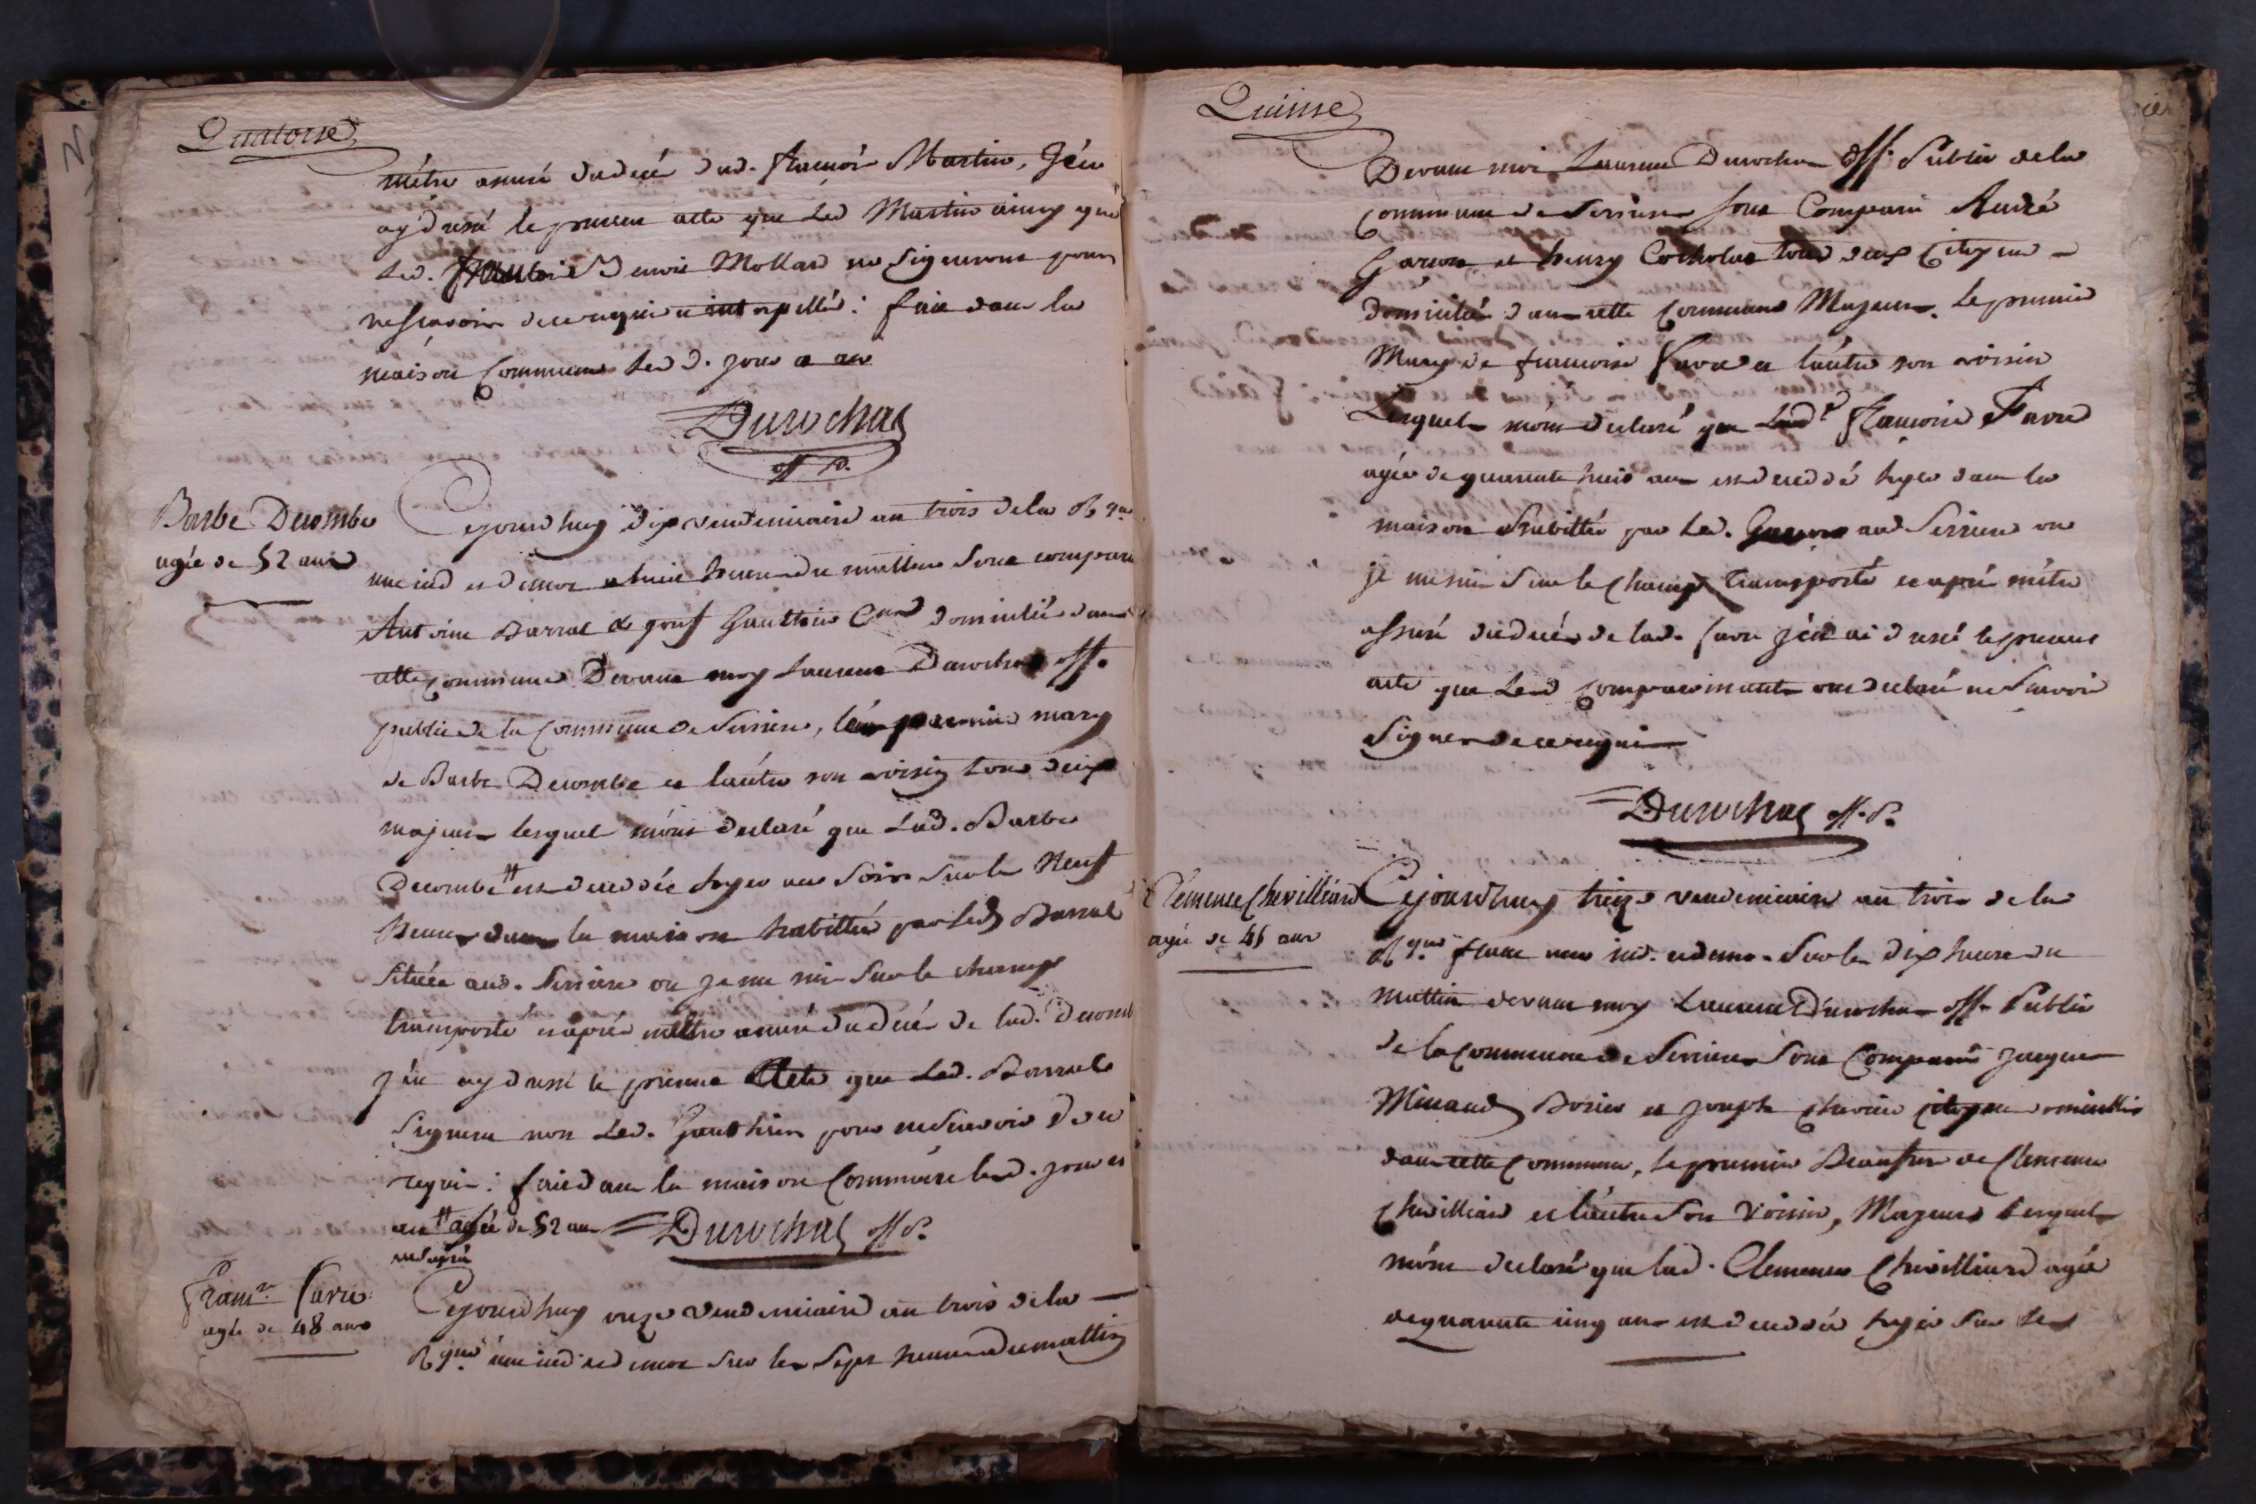 Quatorse
métre assuré du decé dud. francois Martin, J'en
ay dressé le present acte que Led Martin ainsy que
Led. Benois Mollard ne signeront pour
ne scavoir de ce requis et interpellé : fait dans la
maison Commune Led d. jour et an
Durochat
off P.
Barbe Decombe
agée de 52 ans
Cejourd'huy dix vendemiaire an trois de la Rque
une ind et democ a huit heures du mattin sont comparu
Antoine Barral & josef Gautthier domiciliés dans
cette commune Devant moy Laurent Durochat off.
public de la Commune de Serriere, le premier mary
de Barbe Decombe et lautre son voisin tous deux
majeurs lesquel m'ont declaré que Lad. Barbe
Decombe # est deceddée hyer au soir sur les Neuf
heures dans la maison habittée par Led Barral
située aud. Serriere ou je me suis sur le champ
transporté et aprés mettre assuré du decés de lad. Decomb
j'en ay dressé le present Acte que Led. Barral
signera non Led. Gautthier pour ne scavoir de ce
requis : fait dans la maison Commune lesd. jour et
an # agée de 52 ans Durochat off P.
Franc.se Favre
agée de 48 ans
Cejourd'huy onze vendemiaire an trois de la
Rque une ind et democ sur les sept heures du mattin
Quinse
Devant moi Laurent Durochat off. Public de la
commune de Serriere sont Comparu André
et henry tous deux Citoyens
domiciliés dans cette Commune Majeurs. Le premier
Mary de francoise Favre et lautre son voisin
Lesquels m'ont declaré que Lad.e Francoise Favre
agée de quarante huit ans est deceddé hyer dans la
maison habittée par Led. aud Serriere ou
je me suis sur le champ transporté et aprés métre
assuré du decés de lad. favre j'en ai dressé le present
acte que Led comparoissants ont declaré ne scavoir
signer de ce requis
Durochat off. P.
Clémence Chevilliard
agée de 45 ans
Cejourd'huy treize vendemiaire an trois de la
Rque une ind. et democ. sur les dix heures du
mattin devant moy Laurent Durochat off. Public
de la Commune de Serriere sont Comparu jacque
Minaud et joseph citoyens domicilliés
dans cette Commune, le premier Beaufrere de Clemence
Chevilliard et l'autre son voisin, Majeurs Lesquels
m'ont declaré que lad. Clemence Chevilliard agée
de quarante cinq ans est deceddée hyer sur les